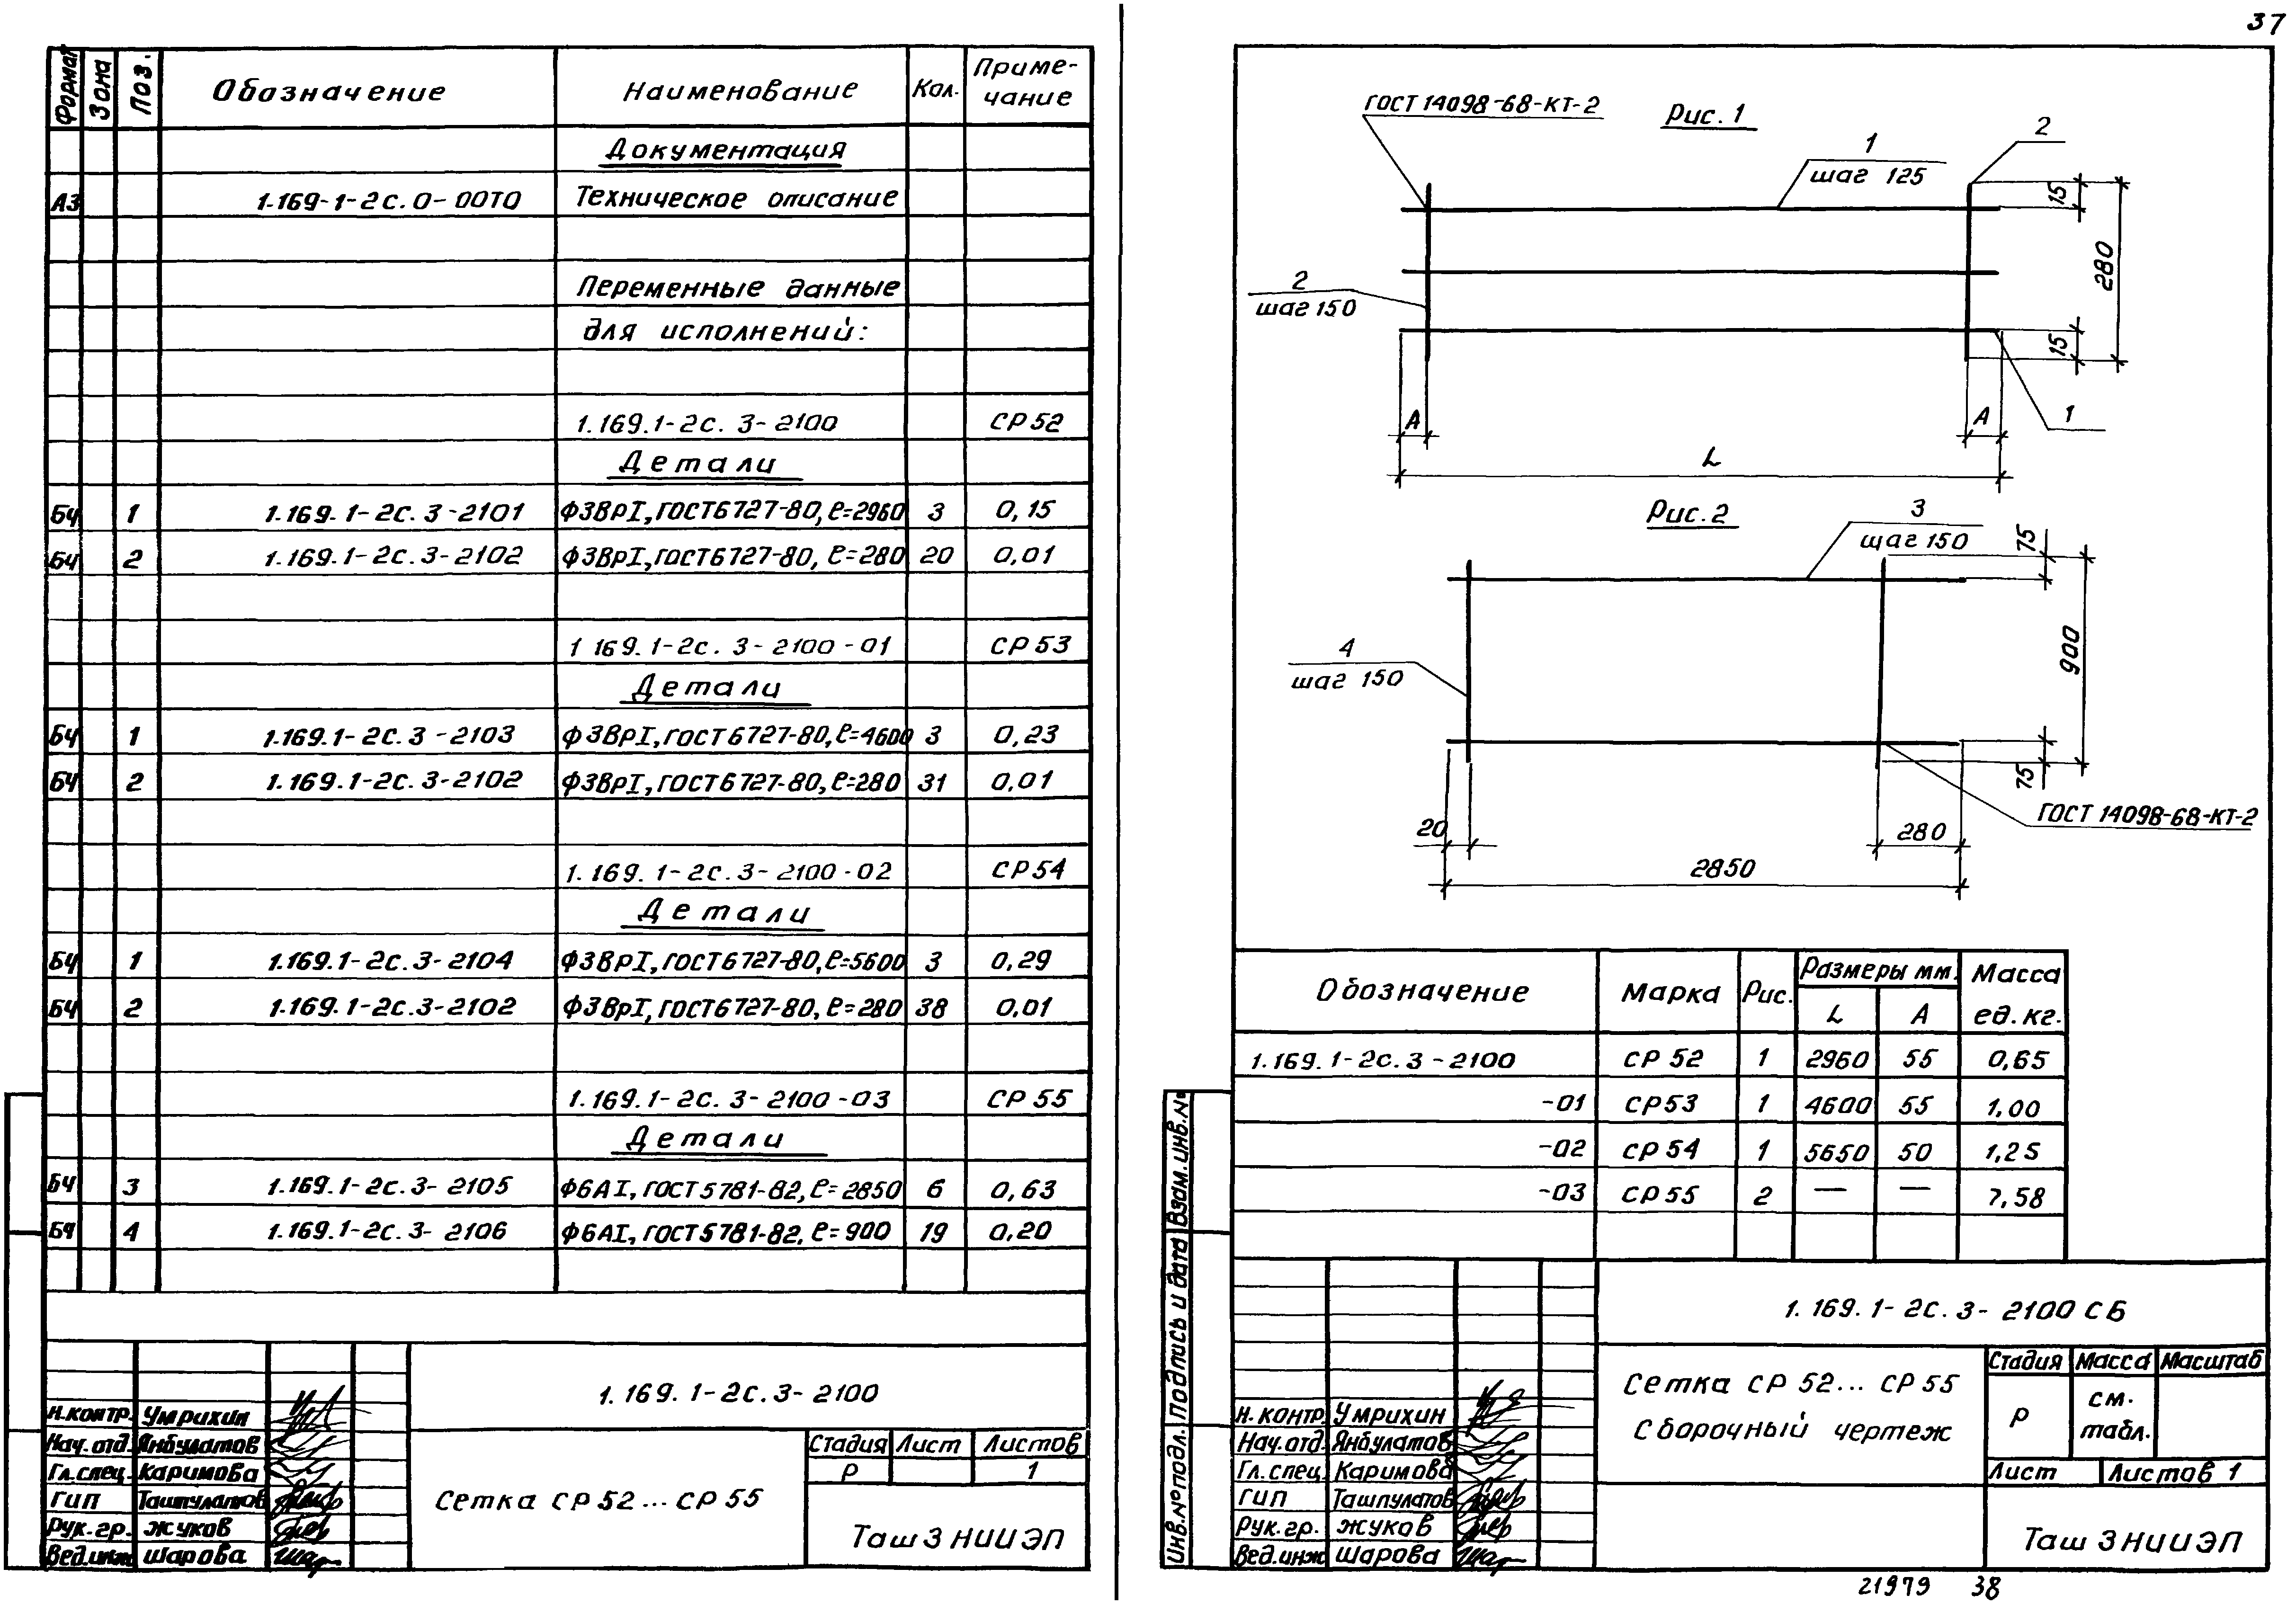 37
Формат Зона Поз. Обозначение Наименование Кол. Приме-
чание
Документация
А3 1.169-1-2с.0-00ТО Техническое описание
Переменные данные
для исполнений:
1.169.1-2с.3-2100 СР 52
Детали
БЧ 1 1.169.1-2с.3-2101 Ф3ВрI, ГОСТ 6727-80, ℓ=2960 3 0,15
БЧ 2 1.169.1-2с.3-2102 Ф3ВрI, ГОСТ 6727-80, ℓ=280 20 0,01
1 169.1-2с.3-2100-01 СР 53
Детали
БЧ 1 1.169.1-2с.3-2103 Ф3ВрI, ГОСТ 6727-80, ℓ=4600 3 0,23
БЧ 2 1.169.1-2с.3-2102 Ф3ВрI, ГОСТ 6727-80, ℓ=280 31 0,01
1.169.1-2с.3-2100-02 СР 54
Детали
БЧ 1 1.169.1-2с.3-2104 Ф3ВрI, ГОСТ 6727-80, ℓ=5600 3 0,29
БЧ 2 1.169.1-2с.3-2102 Ф3ВрI, ГОСТ 6727-80, ℓ=280 38 0,01
1.169.1-2с.3-2100-03 СР 55
Детали
БЧ 3 1.169.1-2с.3-2105 Ф6АI, ГОСТ 5781-82, ℓ=2850 6 0,63
БЧ 4 1.169.1-2с.3-2106 Ф6АI, ГОСТ 5781-82, ℓ=900 19 0,20
1.169.1-2с.3-2100
Н.контр. Умрихин
Нач.отд. Янбулатов
Гл.спец. Каримова
ГИП Ташпулатов
Рук.гр. Жуков
Вед.инж Шарова
Сетка СР 52... СР 55
Стадия Лист Листов
Р 1
ТашЗНИИЭП
ГОСТ 14098-68-КТ-2
Рис. 1
1
шаг 125
2
15
280
2
шаг 150
15
А
А
1
L
Рис. 2
3
шаг 150
75
900
4
шаг 150
75
ГОСТ 14098-68-КТ-2
20
280
2850
Обозначение Марка Рис. Размеры мм. Масса
ед.кг.
L А
1.169.1-2с.3-2100 СР 52 1 2960 55 0,65
-01 СР 53 1 4600 55 1,00
-02 СР 54 1 5650 50 1,25
-03 СР 55 2 — — 7,58
Взам.инв.№
Подпись и дата
Инв.№подл.
1.169.1-2с.3-2100 СБ
Н.контр. Умрихин
Нач.отд. Янбулатов
Гл.спец. Каримова
ГИП Ташпулатов
Рук.гр. Жуков
Вед.инж Шарова
Сетка СР 52... СР 55
Сборочный чертеж
Стадия Масса Масштаб
Р см.
табл.
Лист Листов 1
ТашЗНИИЭП
21979 38